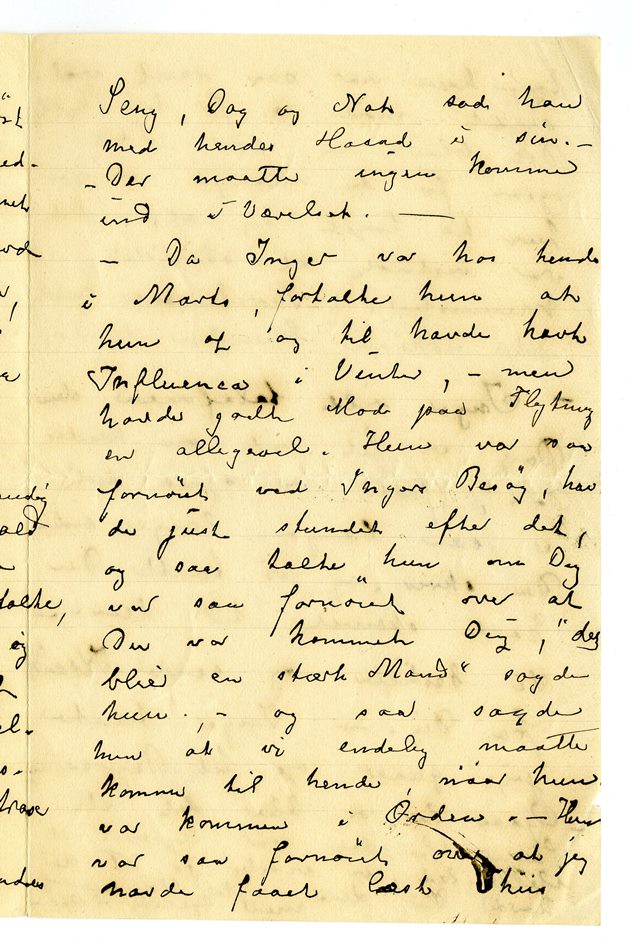 Seng, Dag og Nat sad han
med hendes Haand i sin. –
– Der maatte ingen komme
ind i Værelset. —
– Da Inger var hos hende
i Marts, fortalte hun at
hun af og til havde havt
Influenca i Vinter, – men
havde godt Mod paa Flytning
en allegevel. Hun var saa
fornöiet ved Ingers Besög, hav
de just stundet efter det,
og saa talte hun om Dig
var saa fornöiet over at
Du var kommet Dig, "det
blier en stærk Mand" sagde
hun. , – og saa sagde
hun at vi endelig maatte
komme til hende, naar hun
var kommen i Orden. – Hun
var saa fornöiet over at jeg
havde faaet læst hiis